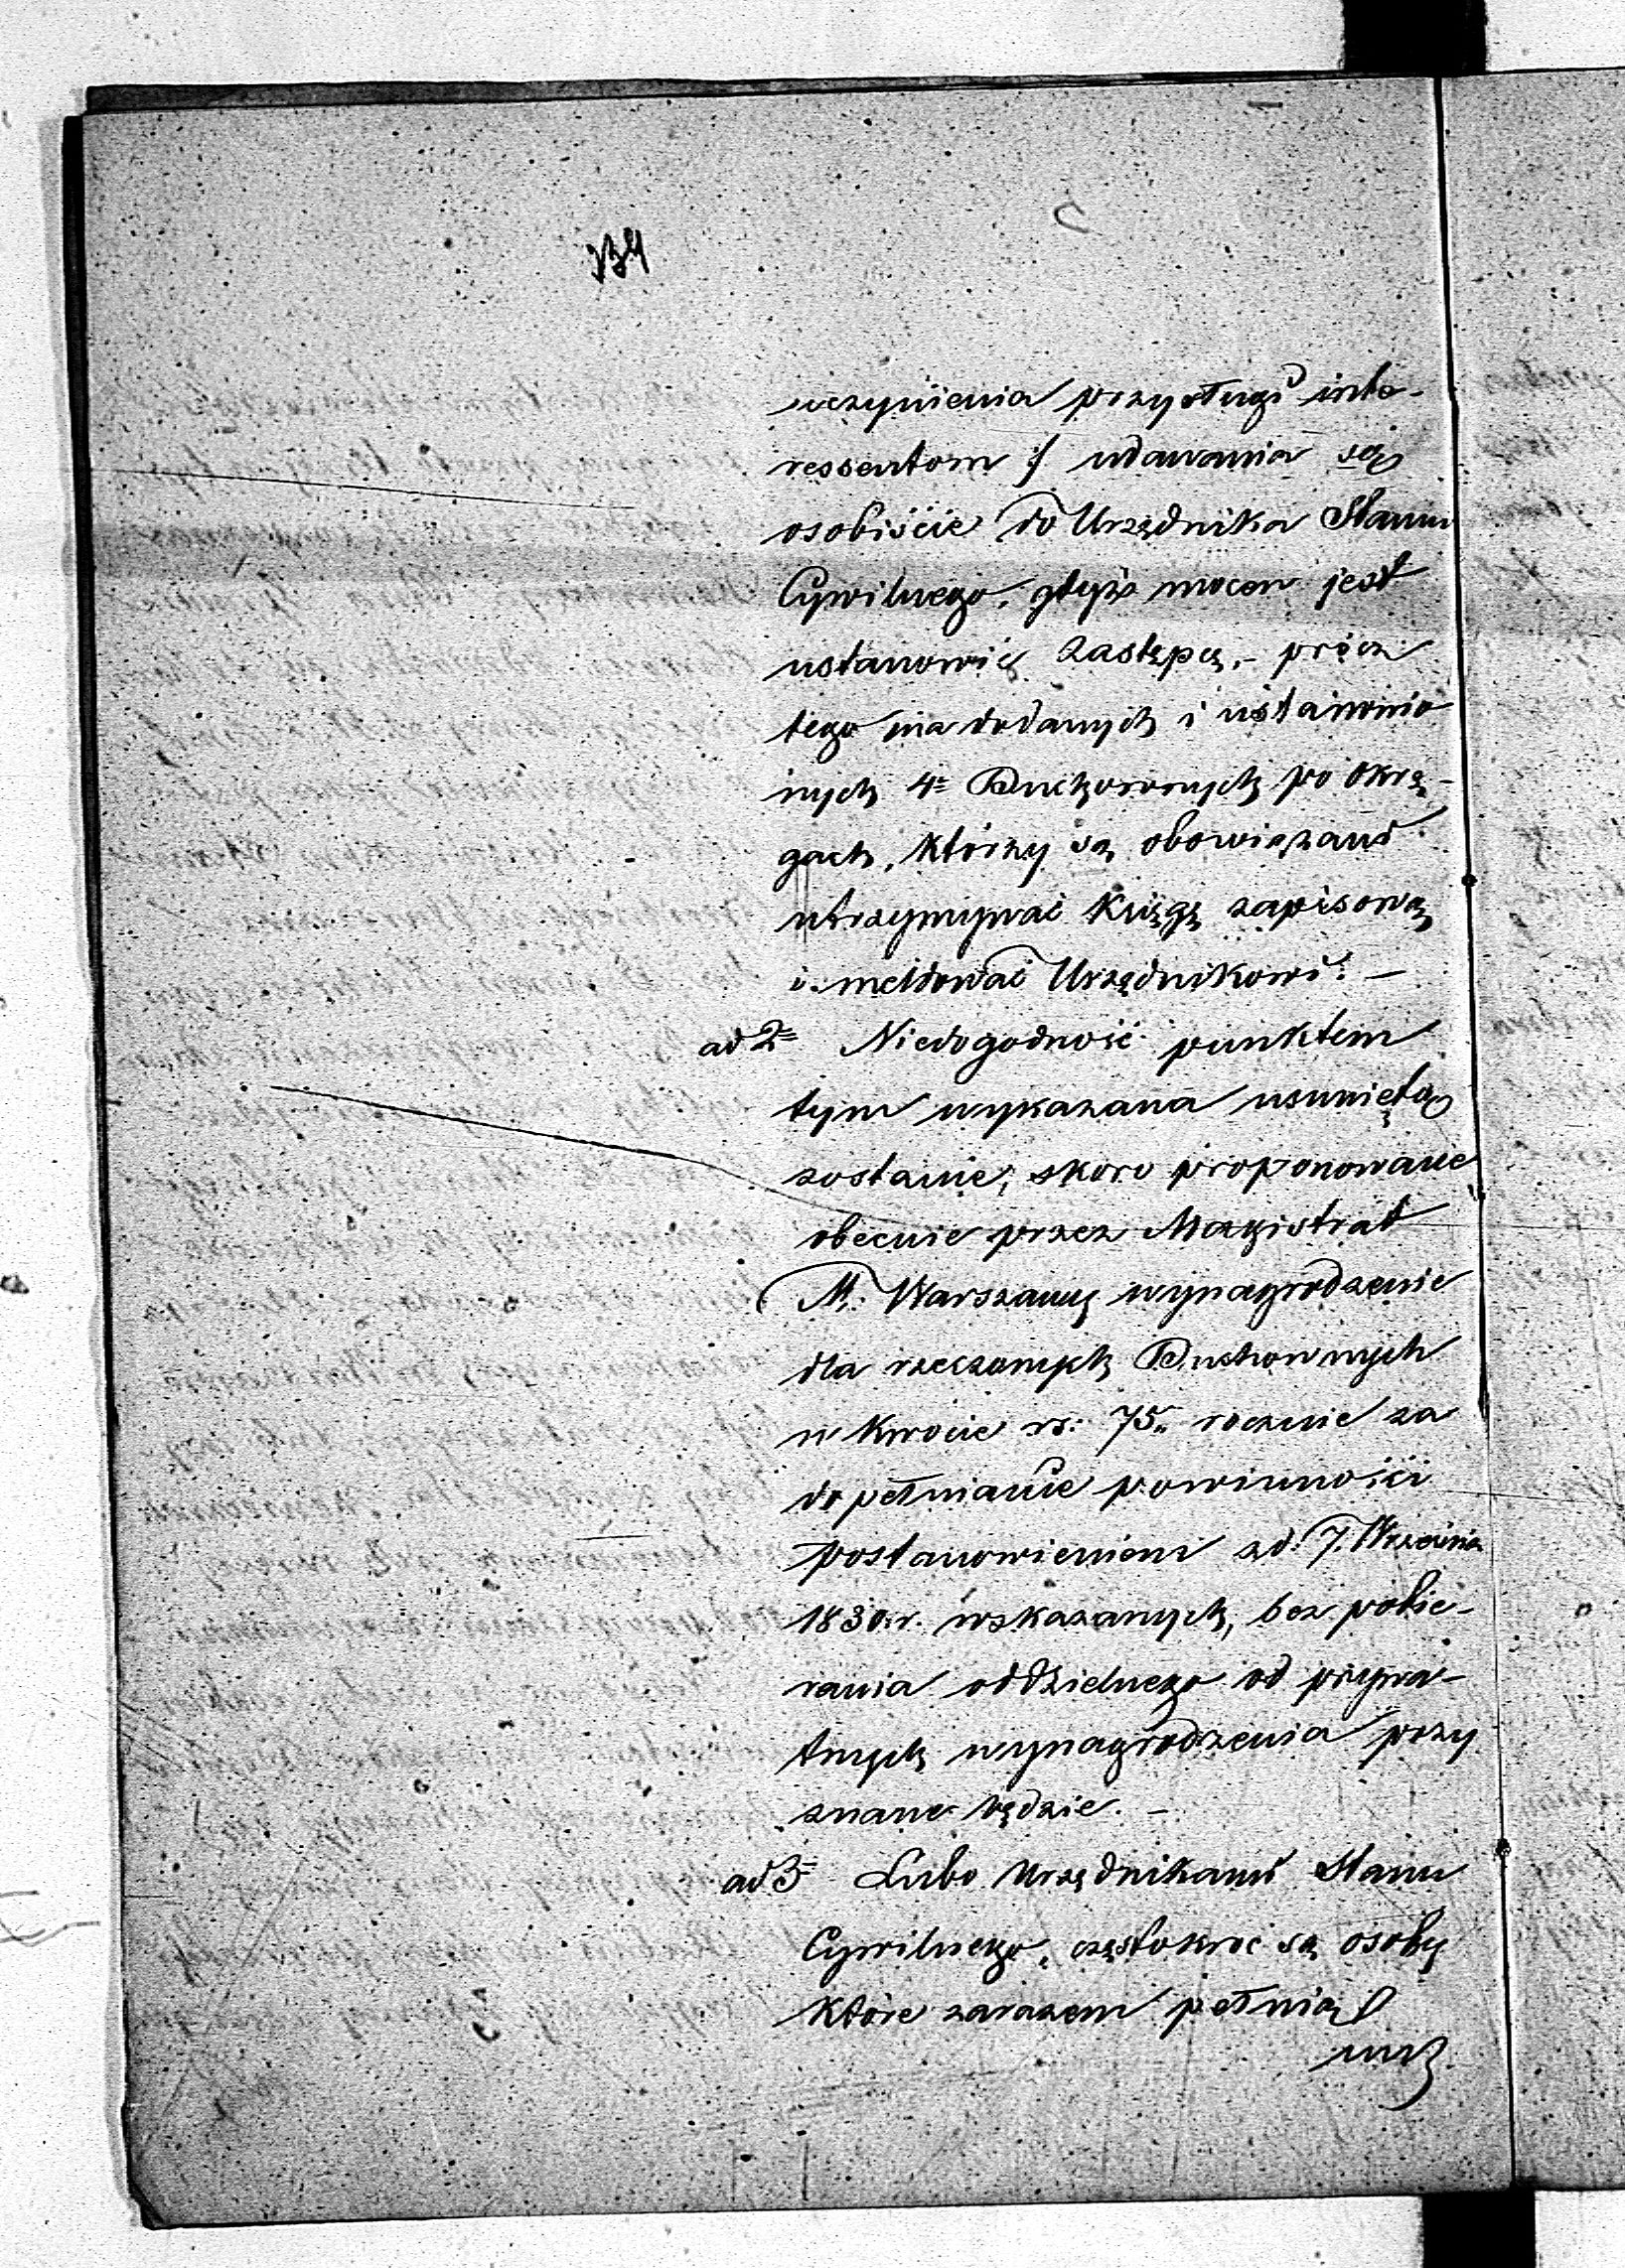 134
uczynienia przysługi inte-
ressentom :/ udawania się
osobiście do Urzędnika Stanu
Cywilnego, gdyż mocen jest
ustanowić Zastępcę, - prócz
tego ma dodanych i ustanowio
nych 4= Duchownych po Okrę-
gach, którzy są obowiązani
utrzymywać Księgę zapisową
i meldować Urzędnikowi. -
ad 2= Niedogodność punktem
tym wykazana usuniętą
zostanie, skoro proponowane
obecnie przez Magistrat
M. Warszawy wynagrodzenie
dla rzeczonych Duchownych
w kwocie rs: 75,, rocznie za
dopełnianie powinności
postanowieniem z d. 7. Września
1830 r. wskazanych, bez pobie-
rania oddzielnego od prywa-
tnych wynagrodzenia przy
znane będzie. -
ad 3= Lubo Urzędnikami Stanu
Cywilnego, częstokroć są osoby
które zarazem pełnią